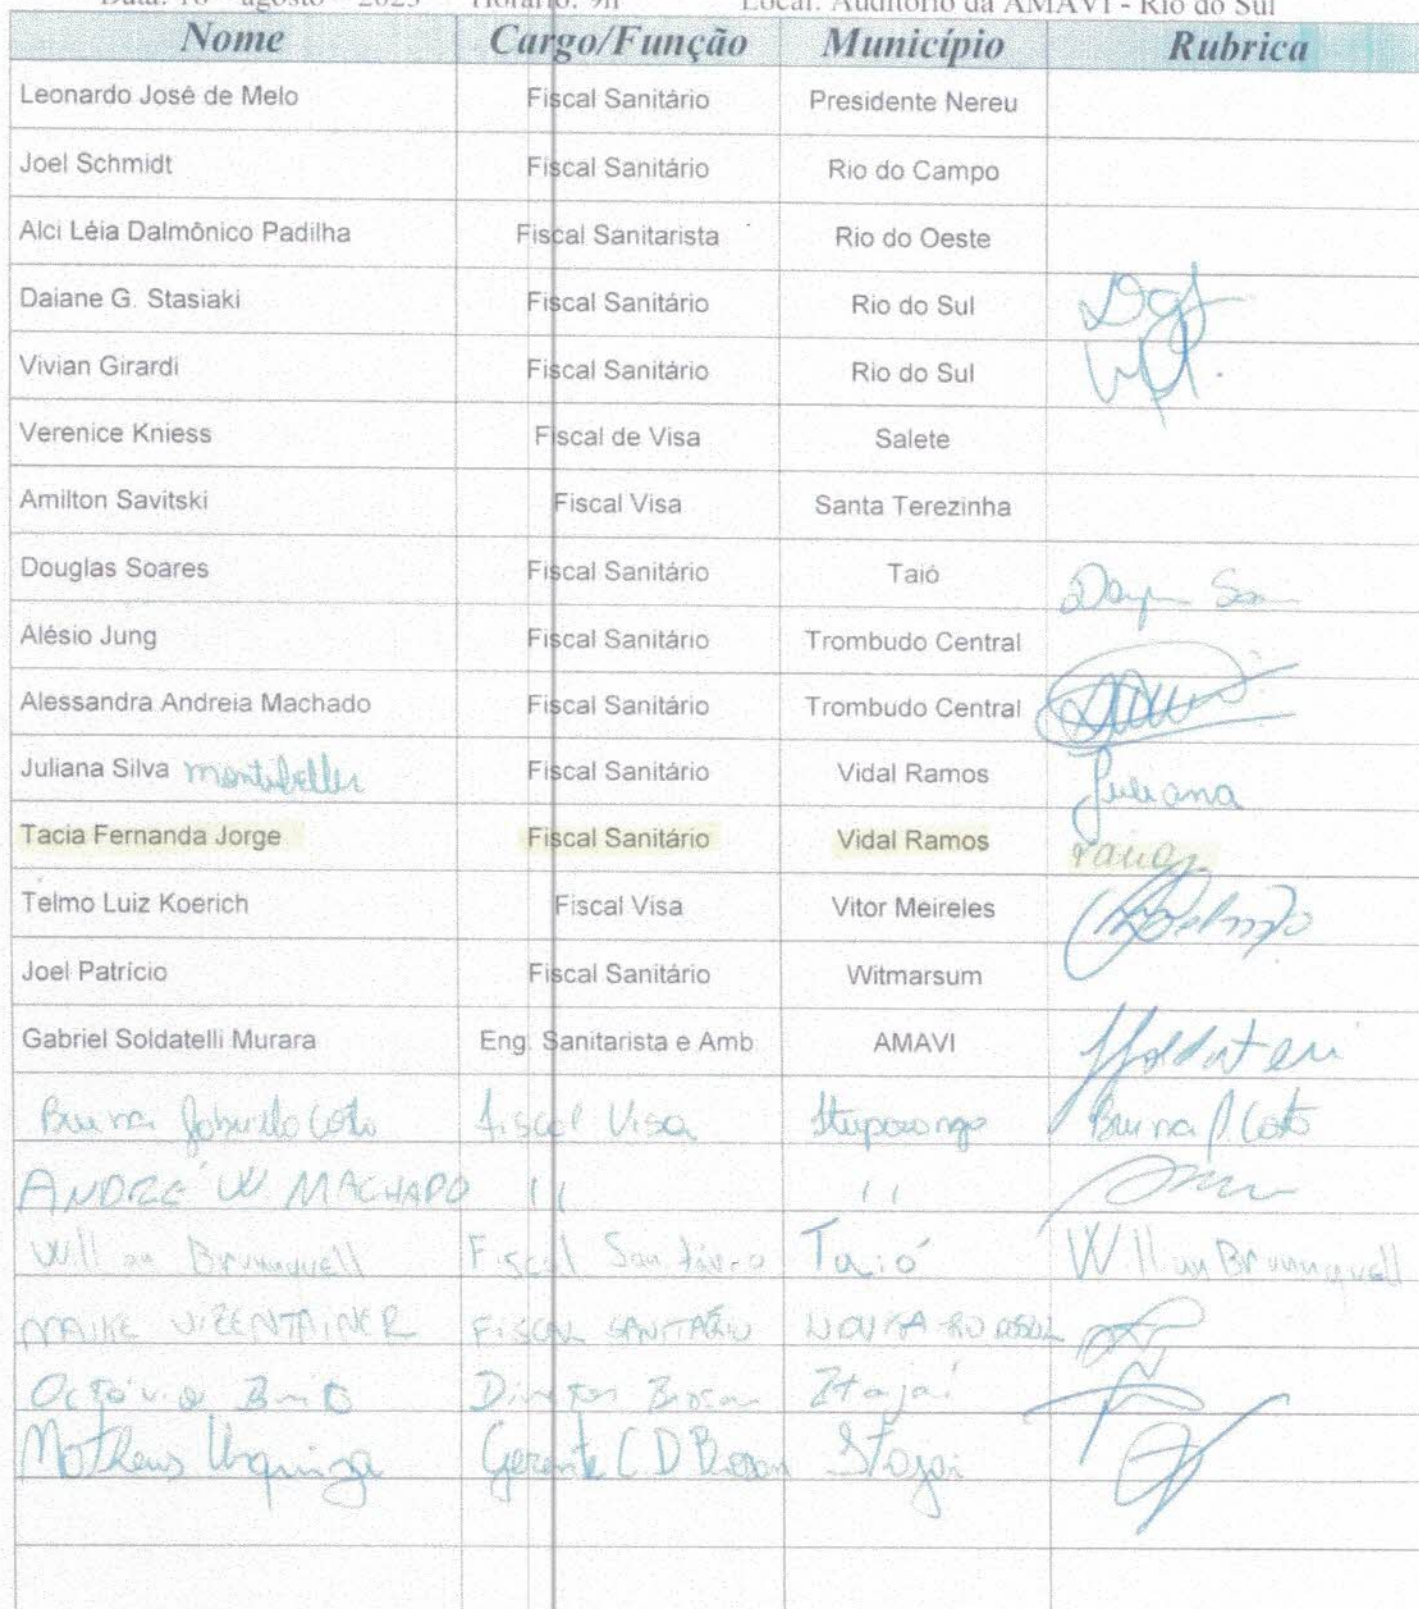 Data: 16 - agosto - 2023 Horário: 9h Local: Auditório da AMAVI - Rio do Sul
Nome Cargo/Função Município Rubrica
Leonardo José de Melo Fiscal Sanitário Presidente Nereu
Joel Schmidt Fiscal Sanitário Rio do Campo
Alci Léia Dalmônico Padilha Fiscal Sanitarista Rio do Oeste
Daiane G. Stasiaki Fiscal Sanitário Rio do Sul
Vivian Girardi Fiscal Sanitário Rio do Sul
Verenice Kniess Fiscal de Visa Salete
Amilton Savitski Fiscal Visa Santa Terezinha
Douglas Soares Fiscal Sanitário Taió
Alésio Jung Fiscal Sanitário Trombudo Central
Alessandra Andreia Machado Fiscal Sanitário Trombudo Central
Juliana Silva Montibeller Fiscal Sanitário Vidal Ramos Juliana
Tacia Fernanda Jorge Fiscal Sanitário Vidal Ramos
Telmo Luiz Koerich Fiscal Visa Vitor Meireles
Joel Patrício Fiscal Sanitário Witmarsum
Gabriel Soldatelli Murara Eng. Sanitarista e Amb AMAVI
Bruna Costa Fiscal Visa Ituporanga Bruna Costa
ANDRÉ W MACHADO 11 11
Willian Brunnquell Fiscal Sanitário Taió Willian Brunnquell
MAIKE VIZENTAINER FISCAL SANITÁRIO
Octávio Brito Diretor Itajaí
Matheus Urquiza Gerente C D Itajaí